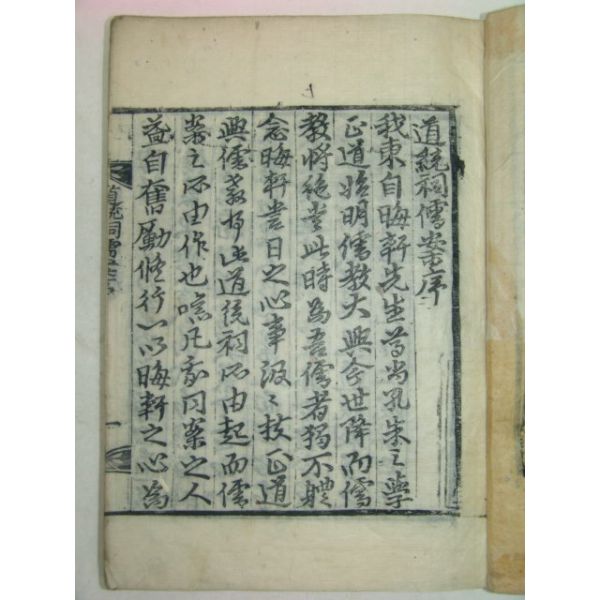 道統祠儒案序
我東自晦軒先生尊尚孔朱之學
正道始明儒教大興今世降而儒
教將絶當此時為吾儒者獨不軆
念晦軒當日之心事汲〻扶正道
興儒教乎此道統祠所由起而儒
案之所由作也嗟凡我同案之人
益自奮勵修行以晦軒之心為
道統祠儒案序
一